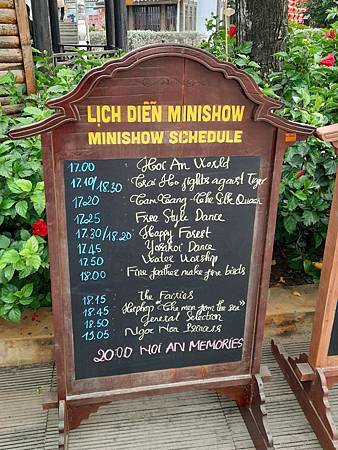 LỊCH DIỄN MINISHOW
MINISHOW SCHEDULE
17.00 Hoi An World
17.10/18.30 Trai Ho fights against Tiger
17.20 Tam Tang - The Silk Queen
17.25 Free Style Dance
17.30/18.20 Happy Forest
17.45 Yosakoi Dance
17.50 Water Worship
18.00 Fine feather make fine birds
18.15 The Fairies
18.45 Hiphop "The men from the sea"
18.50 General Selection
19.05 Ngoc Hoa Princess
20:00 HOI AN MEMORIES